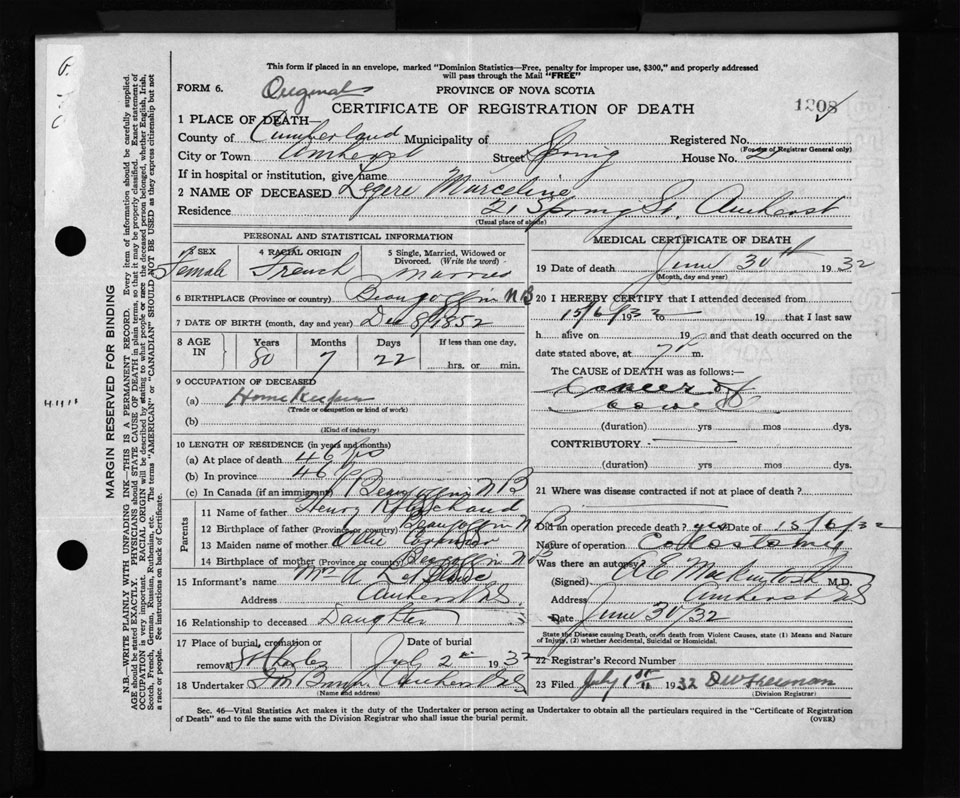 This form if placed in an envelope, marked "Dominion Statistics—Free, penalty for improper use, $300," and properly addressed
will pass through the Mail "FREE"
FORM 6. Original PROVINCE OF NOVA SCOTIA
CERTIFICATE OF REGISTRATION OF DEATH 1208
1 PLACE OF DEATH—
County of Cumberland Municipality of Registered No. (For use of Registrar General only)
City or Town Amherst Street Spring House No. 21
If in hospital or institution, give name
2 NAME OF DECEASED Legere Marceline
Residence 21 Spring St. Amherst
(Usual place of abode)
PERSONAL AND STATISTICAL INFORMATION
3 SEX 4 RACIAL ORIGIN 5 Single, Married, Widowed or Divorced. (Write the word)
Female French Married
6 BIRTHPLACE (Province or country) N B
7 DATE OF BIRTH (month, day and year) Dec 8/1852
8 AGE IN Years Months Days If less than one day,
80 7 22 hrs. or min.
9 OCCUPATION OF DECEASED
(a) HomeKeeper
(Trade or occupation or kind of work)
(b)
(Kind of industry)
10 LENGTH OF RESIDENCE (in years and months)
(a) At place of death 46 yrs
(b) In province 46
(c) In Canada (if an immigrant) N B
Parents
11 Name of father Henry
12 Birthplace of father (Province or country) N B
13 Maiden name of mother Ollie
14 Birthplace of mother (Province or country) N B
15 Informant's name Mrs A LeBlanc
Address Amherst N.S.
16 Relationship to deceased Daughter
17 Place of burial, cremation or removal St Charles Date of burial July 2nd 1932
18 Undertaker Amherst N S
(Name and address)
MEDICAL CERTIFICATE OF DEATH
19 Date of death June 30th 1932
(Month, day and year)
20 I HEREBY CERTIFY that I attended deceased from
15/6/32 19 to 19 that I last saw
h. alive on 19 and that death occurred on the
date stated above, at 7 m.
The CAUSE of DEATH was as follows:—
Cancer of
bowel
(duration) yrs mos dys.
CONTRIBUTORY
(duration) yrs mos dys.
21 Where was disease contracted if not at place of death?
Did an operation precede death? yes Date of 15/6/32
Nature of operation Collostomy
Was there an autopsy?
(Signed) Mackintosh M.D.
Address Amherst NS
Date June 30/32
State the Disease causing Death, or in death from Violent Causes, state (1) Means and Nature
of Injury, (2) whether Accidental, Suicidal or Homicidal.
22 Registrar's Record Number
23 Filed July 1st 1932
(Division Registrar)
Sec. 46—Vital Statistics Act makes it the duty of the Undertaker or person acting as Undertaker to obtain all the particulars required in the "Certificate of Registration
of Death" and to file the same with the Division Registrar who shall issue the burial permit. (OVER)
MARGIN RESERVED FOR BINDING
N.B.—WRITE PLAINLY WITH UNFADING INK—THIS IS A PERMANENT RECORD. Every item of information should be carefully supplied.
AGE should be stated EXACTLY. PHYSICIANS should STATE CAUSE OF DEATH in plain terms, so that it may be properly classified. Exact statement of
OCCUPATION is very important. RACIAL ORIGIN will be described by stating to what people or race the deceased person belonged, whether English, Irish,
Scotch, French, German, Russian, Ruthenian, etc. The terms "AMERICAN" or "CANADIAN" SHOULD NOT BE USED as they express citizenship but not
a race or people. See instructions on back of Certificate.